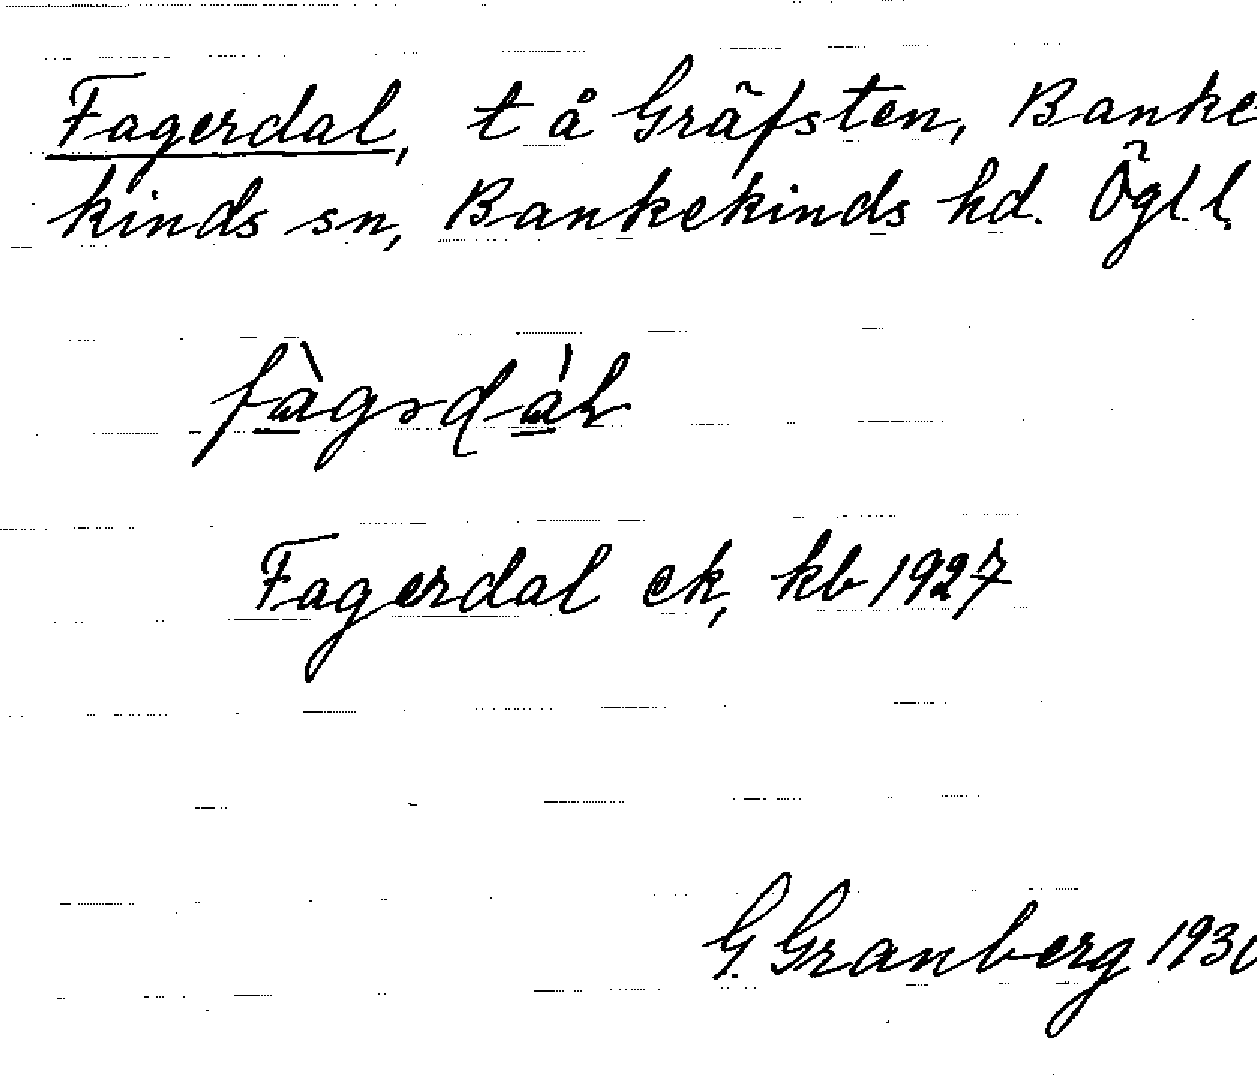 Fagerdal, t å Gräfsten, Banke
kinds sn, Bankekinds hd. Ögl l.
fàgərdáL
Fagerdal ek, kb 1927
G. Granberg 1930